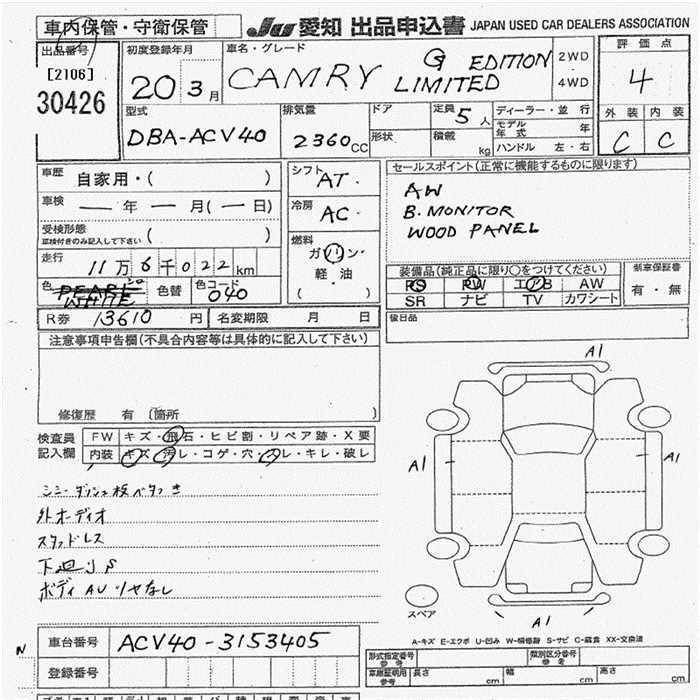 車内保管・守衛保管
JU 愛知 出品申込書 JAPAN USED CAR DEALERS ASSOCIATION
出品番号
[2106]
30426
初度登録年月
20 3月
車名・グレード
CAMRY G EDITION
LIMITED
2WD
4WD
評価点
4
外装 内装
C C
型式
DBA-ACV40
排気量
2360CC
ドア
形状
定員 5人
積載 kg
ディーラー・並行
モデル年式 年
ハンドル 左・右
車歴 自家用・( )
車検 ― 年 ― 月(― 日)
受検形態
車検付きのみ記入して下さい ( )
走行 11万6千022km
色 PEARL シロ
WHITE
色替
色コード
040
シフト AT
冷房 AC
燃料
ガソリン・
軽・油
( )
R券 13610円
名変期限 月 日
セールスポイント(正常に機能するものに限ります)
AW
B.MONITOR
WOOD PANEL
装備品(純正品に限り○をつけてください)
PS PW エアB AW
SR ナビ TV カワシート
新車保証書
有・無
後日品
注意事項申告欄(不具合内容等は具体的に記入して下さい)
修復歴 有 〔箇所 〕
検査員
記入欄
FW キズ・飛石・ヒビ割・リペア跡・X要
内装 キズ・汚レ・コゲ・穴・スレ・キレ・破レ
外オーディオ
スタッドレス
下廻りS
ボディAUツヤなし
A1
A1
A1
A1
スペア
A-キズ E-エクボ U-凹み W-補修跡 S-サビ C-腐食 XX-交換済
N
車台番号 ACV40-3153405
登録番号
形式指定番号
参考
類別区分番号
参考
車庫証明用
参考
長さ cm
幅 cm
高さ cm